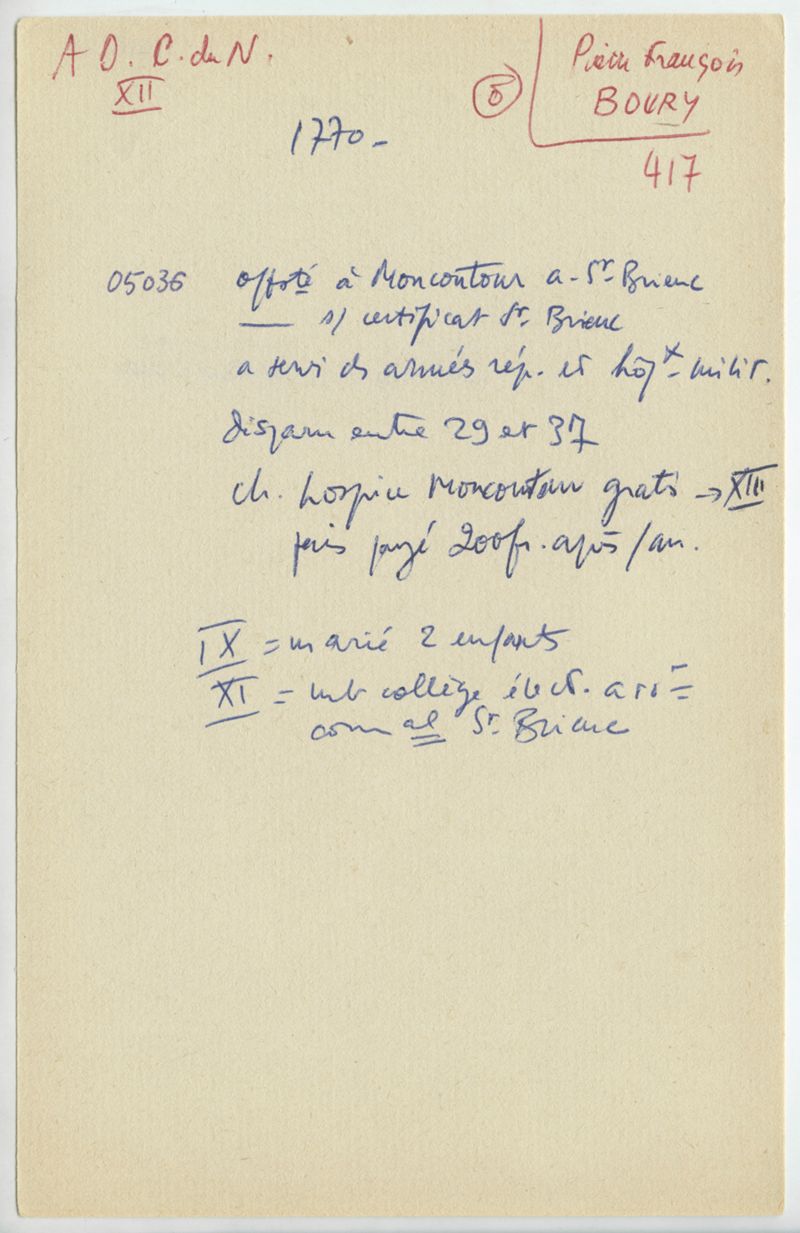 A D. C. du N.
XII
5
Pierre François
BOURY
417
1770 -
05036 offsté à Moncontour a - St Brieuc
— s/ certificat St. Brieuc
a servi ds armées rép. et hôpx milit.
disparu entre 29 et 37
ch. hospice Moncontour gratis → XIII
puis payé 200 fr. après /an.
IX = marié 2 enfants
XI = mb collège élect. arrt =
comal St. Brieuc